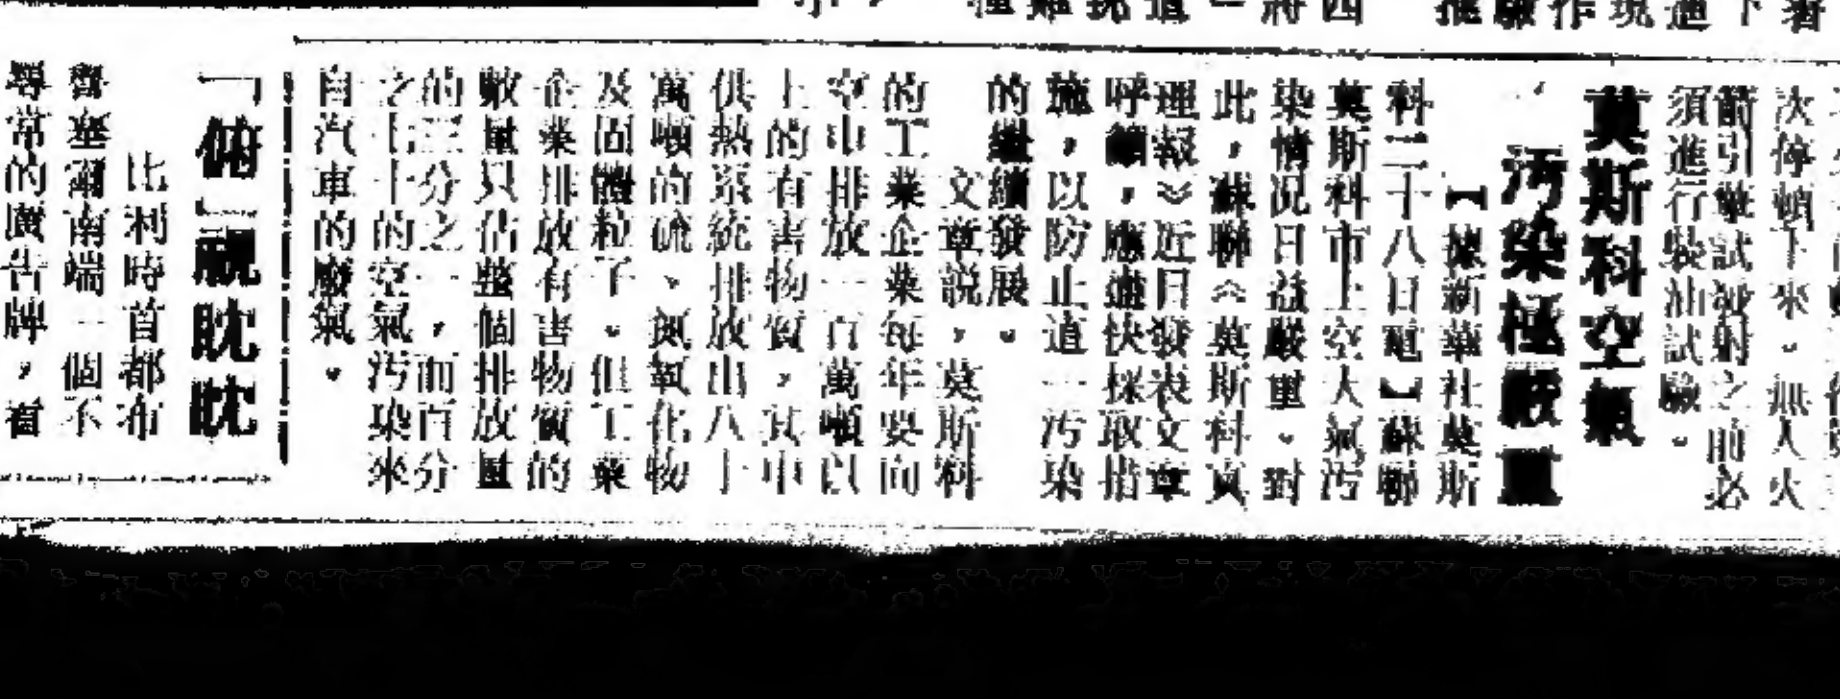 次停頓下來。無人火
箭引擎試射之前必
須進行裝油試驗。
莫斯科空氣
污染極嚴重
【據新華社莫斯
科二十八日電】蘇聯
莫斯科市上空大氣污
染情況日益嚴重。對
此，蘇聯《莫斯科真
理報》近日發表文章
呼籲，應儘快採取措
施，以防止這一污染
的繼續發展。
文章說，莫斯科
的工業企業每年要向
空中排放一百萬噸以
上的有害物質，其中
供熱系統排放出八十
萬噸的硫、氮氧化物
及固體粒子。但工業
企業排放有害物質的
數量只佔整個排放量
的三分之一，而百分
之七十的空氣污染來
自汽車的廢氣。
「俯」視眈眈
比利時首都布
魯塞爾南端一個不
尋常的廣告牌，看